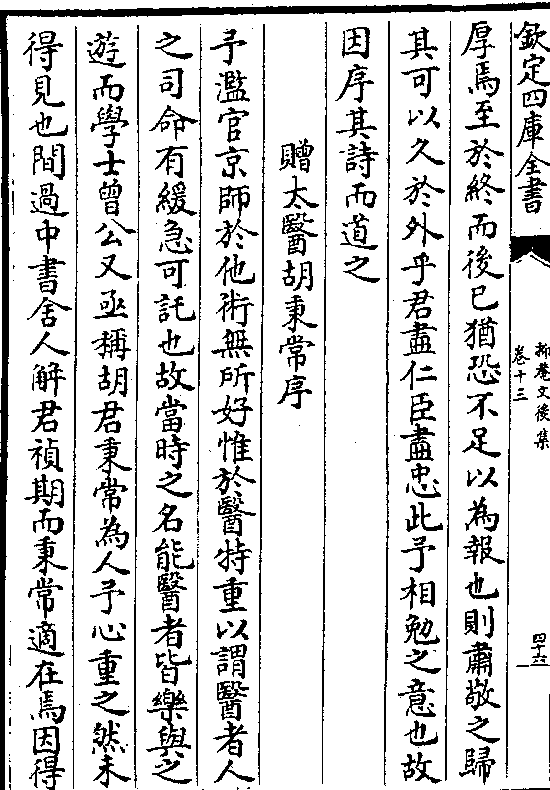 欽定四庫全書
抑菴文後集
卷十三
四十六
厚焉至於終而後已猶恐不足以為報也則肅敬之歸
其可以久於外乎君盡仁臣盡忠此予相勉之意也故
因序其詩而道之
贈太醫胡秉常序
予濫官京師於他術無所好惟於醫特重以謂醫者人
之司命有緩急可託也故當時之名能醫者皆樂與之
遊而學士曾公又亟稱胡君秉常為人予心重之然未
得見也間過中書舍人解君禎期而秉常適在焉因得